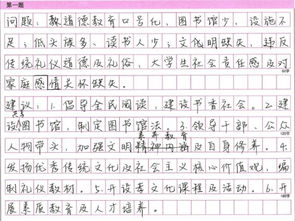 第一题
问题:教道德教育口号化,图书馆少,设施不
足;低头族多,读书人少;文化明缺失,违反
传统道德及礼俗,大学生社会责任感及对
家庭感情关怀缺失。
建议:1.倡导全民阅读,建设书香社会。2.建
共享
设图书馆,制定图书馆法。3.领导干部、公众
素养教育
人物带头,加强文明精神内涵及自身修养。4.
发扬优秀传统文化及社会主义核心价值观,编
制礼仪教材。5.开设孝文化课程及活动。6.开
展素质教育及人才培养。